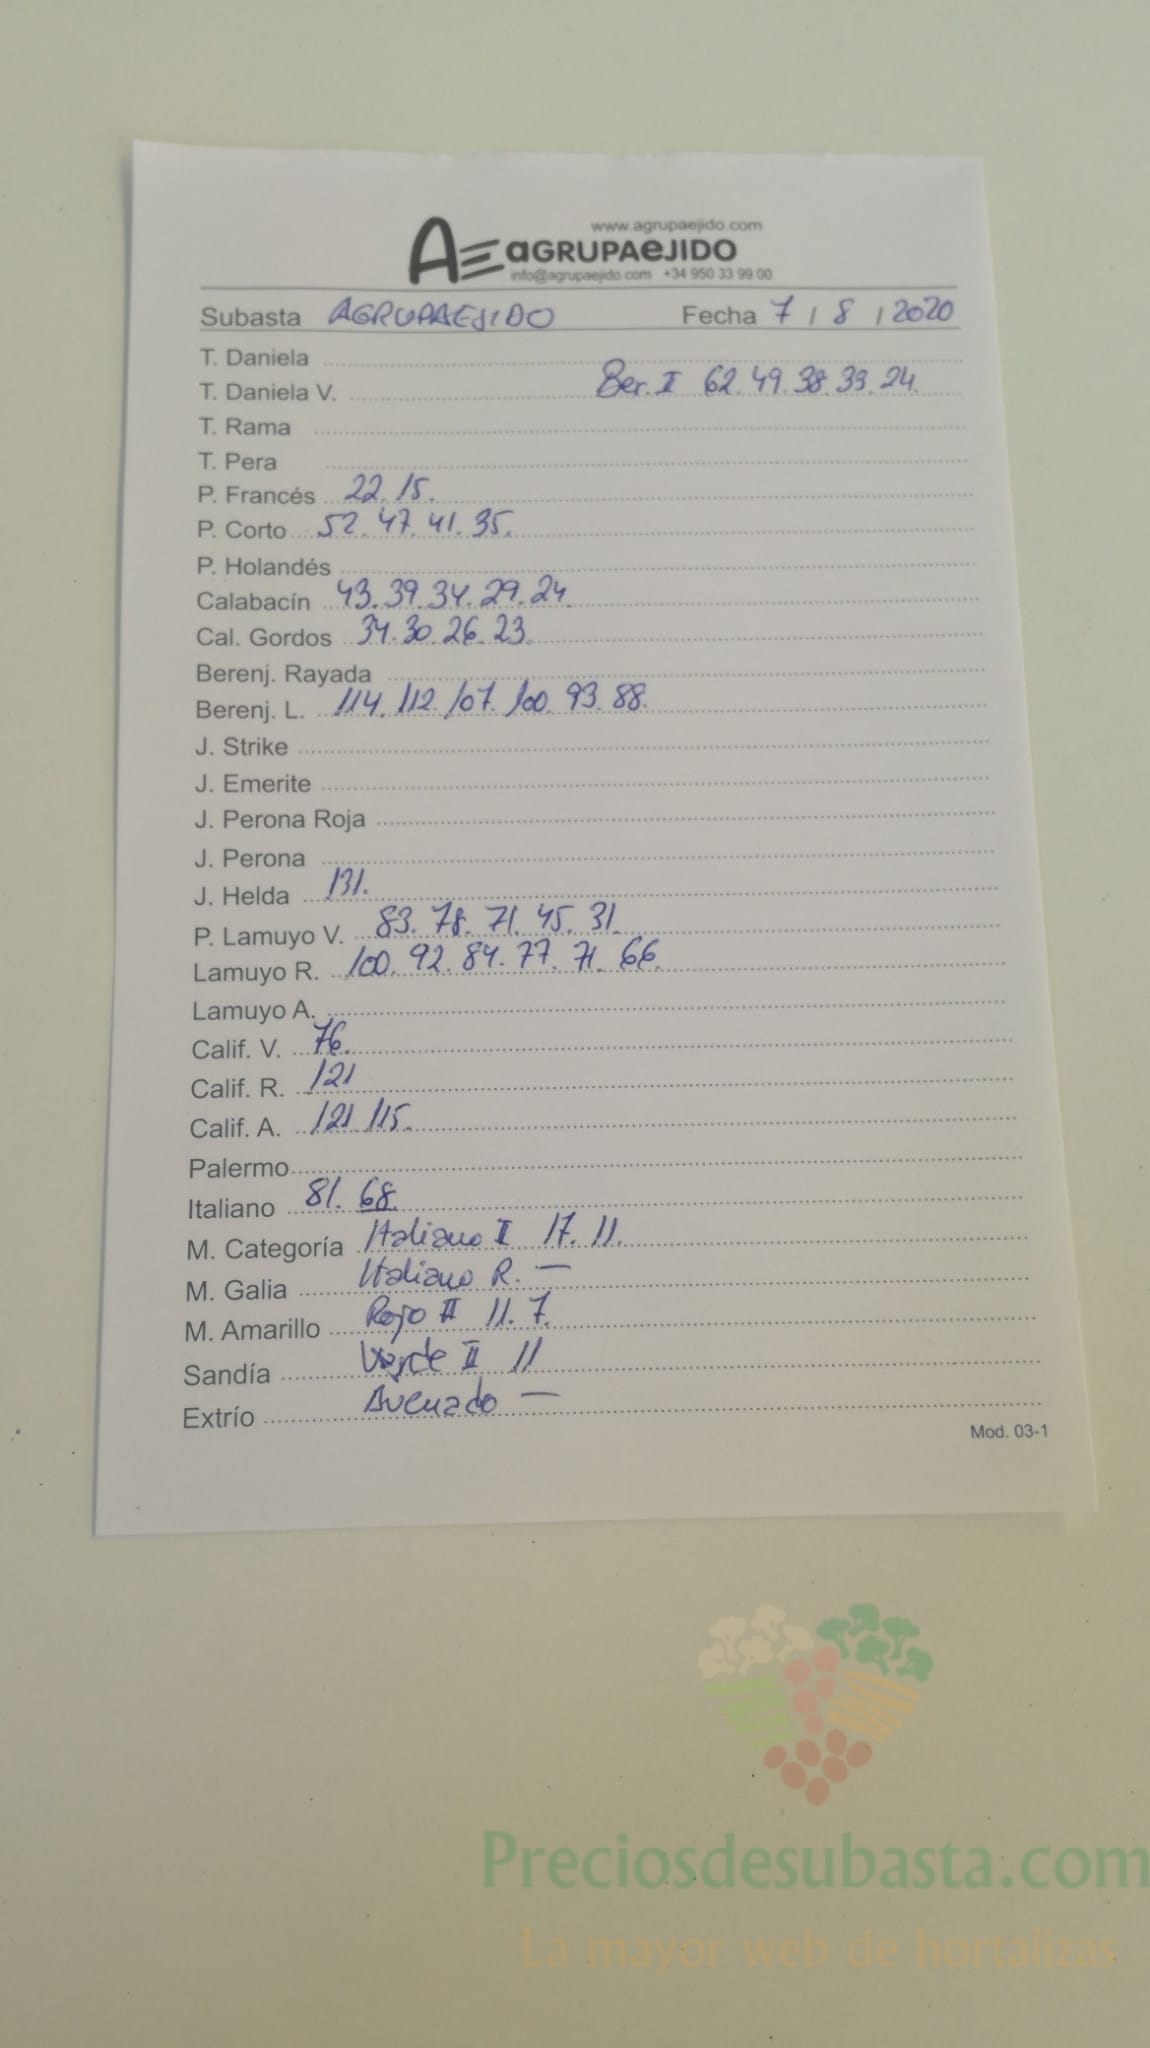 www.agrupaejido.com
AE aGRUPAeJIDO
info@agrupaejido.com +34 950 33 99 00
Subasta AGRUPAEJIDO Fecha 7 / 8 / 2020
T. Daniela
T. Daniela V. Ber. II 62. 49. 38. 33. 24.
T. Rama
T. Pera
P. Francés 22. 15.
P. Corto 52. 47. 41. 35.
P. Holandés
Calabacín 43. 39. 34. 29. 24.
Cal. Gordos 34. 30. 26. 23.
Berenj. Rayada
Berenj. L. 114. 112. 107. 100. 93. 88.
J. Strike
J. Emerite
J. Perona Roja
J. Perona
J. Helda 131.
P. Lamuyo V. 83. 78. 71. 45. 31.
Lamuyo R. 100. 92. 84. 77. 71. 66.
Lamuyo A.
Calif. V. 76.
Calif. R. 121
Calif. A. 121. 115.
Palermo
Italiano 81. 68.
M. Categoría Italiano II 17. 11.
M. Galia Italiano R. —
M. Amarillo Rojo II 11. 7.
Sandía Verde II 11
Extrío Avenado —
Mod. 03-1
Preciosdesubasta.com
La mayor web de hortalizas